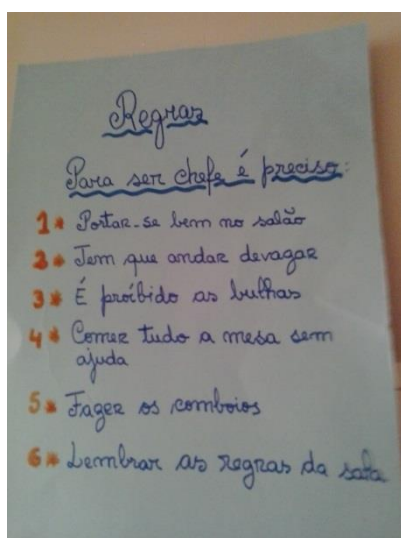 Regras
Para ser chefe é preciso:
1* Portar-se bem no salão
2* Tem que andar devagar
3* É proíbido as bulhas
4* Comer tudo a mesa sem
ajuda
5* Fazer os comboios
6* Lembrar as regras da sala